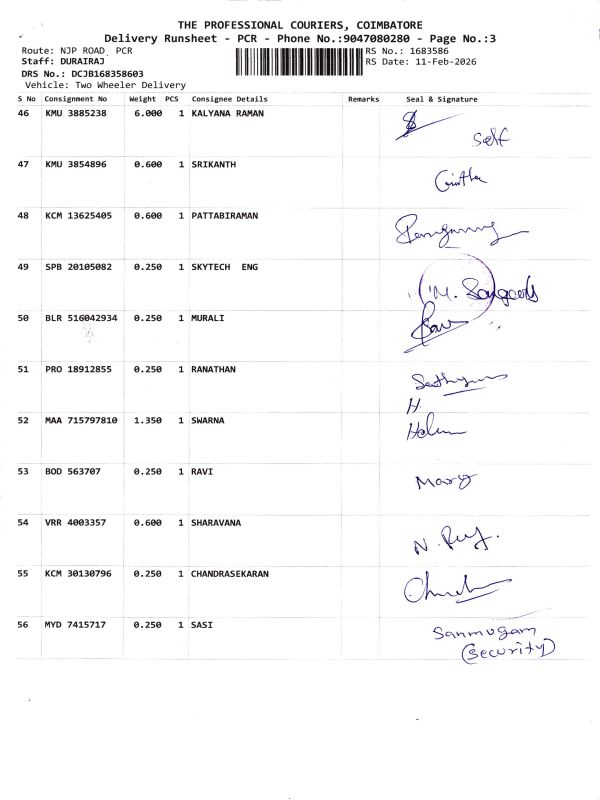 THE PROFESSIONAL COURIERS, COIMBATORE
Delivery Runsheet - PCR - Phone No.:9047080280 - Page No.:3
Route: NJP ROAD, PCR RS No.: 1683586
Staff: DURAIRAJ RS Date: 11-Feb-2026
DRS No.: DCJB168358603
Vehicle: Two Wheeler Delivery
S No Consignment No Weight PCS Consignee Details Remarks Seal & Signature
46 KMU 3885238 6.000 1 KALYANA RAMAN
Self
47 KMU 3854896 0.600 1 SRIKANTH
48 KCM 13625405 0.600 1 PATTABIRAMAN
49 SPB 20105082 0.250 1 SKYTECH ENG
50 BLR 516042934 0.250 1 MURALI
51 PRO 18912855 0.250 1 RANATHAN
H.
52 MAA 715797810 1.350 1 SWARNA
53 BOD 563707 0.250 1 RAVI
Mary
54 VRR 4003357 0.600 1 SHARAVANA
55 KCM 30130796 0.250 1 CHANDRASEKARAN
56 MYD 7415717 0.250 1 SASI
Sanmugam
(Security)